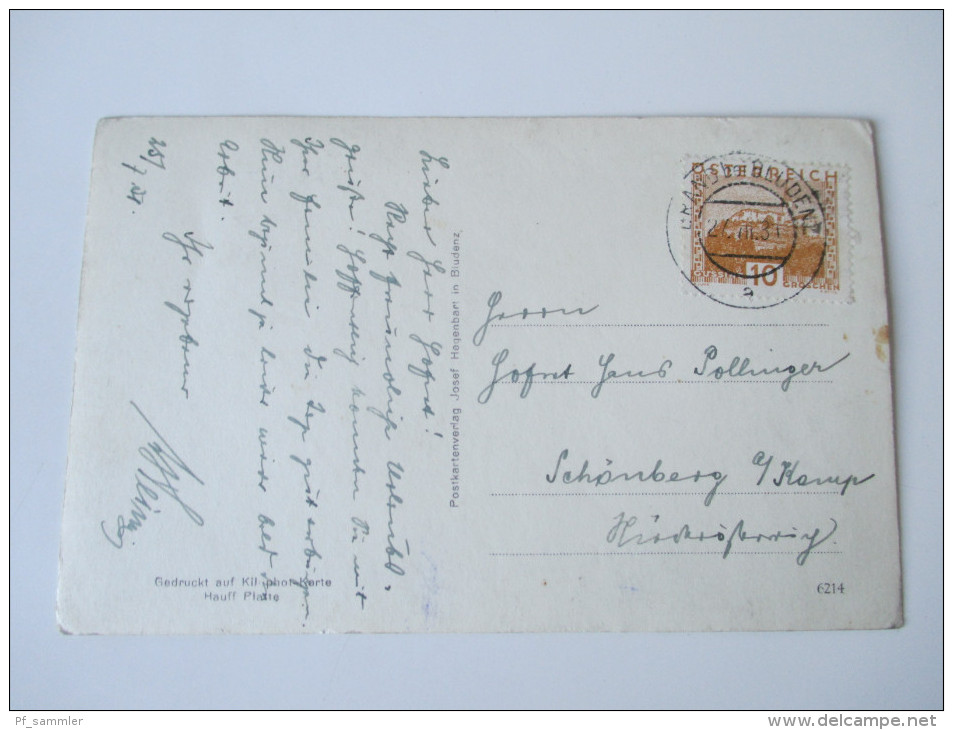 25/
Lieber Herr Hofrat!
Recht freundliche Urlaubs-
grüße! Hoffentlich konnten Sie mit
Ihrer Familie die Tage gut verbringen.
Nun beginnt ja leider wieder bald die
Arbeit.
Ihr ergebener
Gedruckt auf Kilophot-Karte
Hauff Platte
Postkartenverlag Josef Hagenbart in Bludenz
ÖSTERREICH
10
GROSCHEN
BLUDENZ
a
Herrn
Hofrat Hans Pollinger
Schönberg a/Kamp
Niederösterreich
6214
Pf_sammler
www.delcampe.net